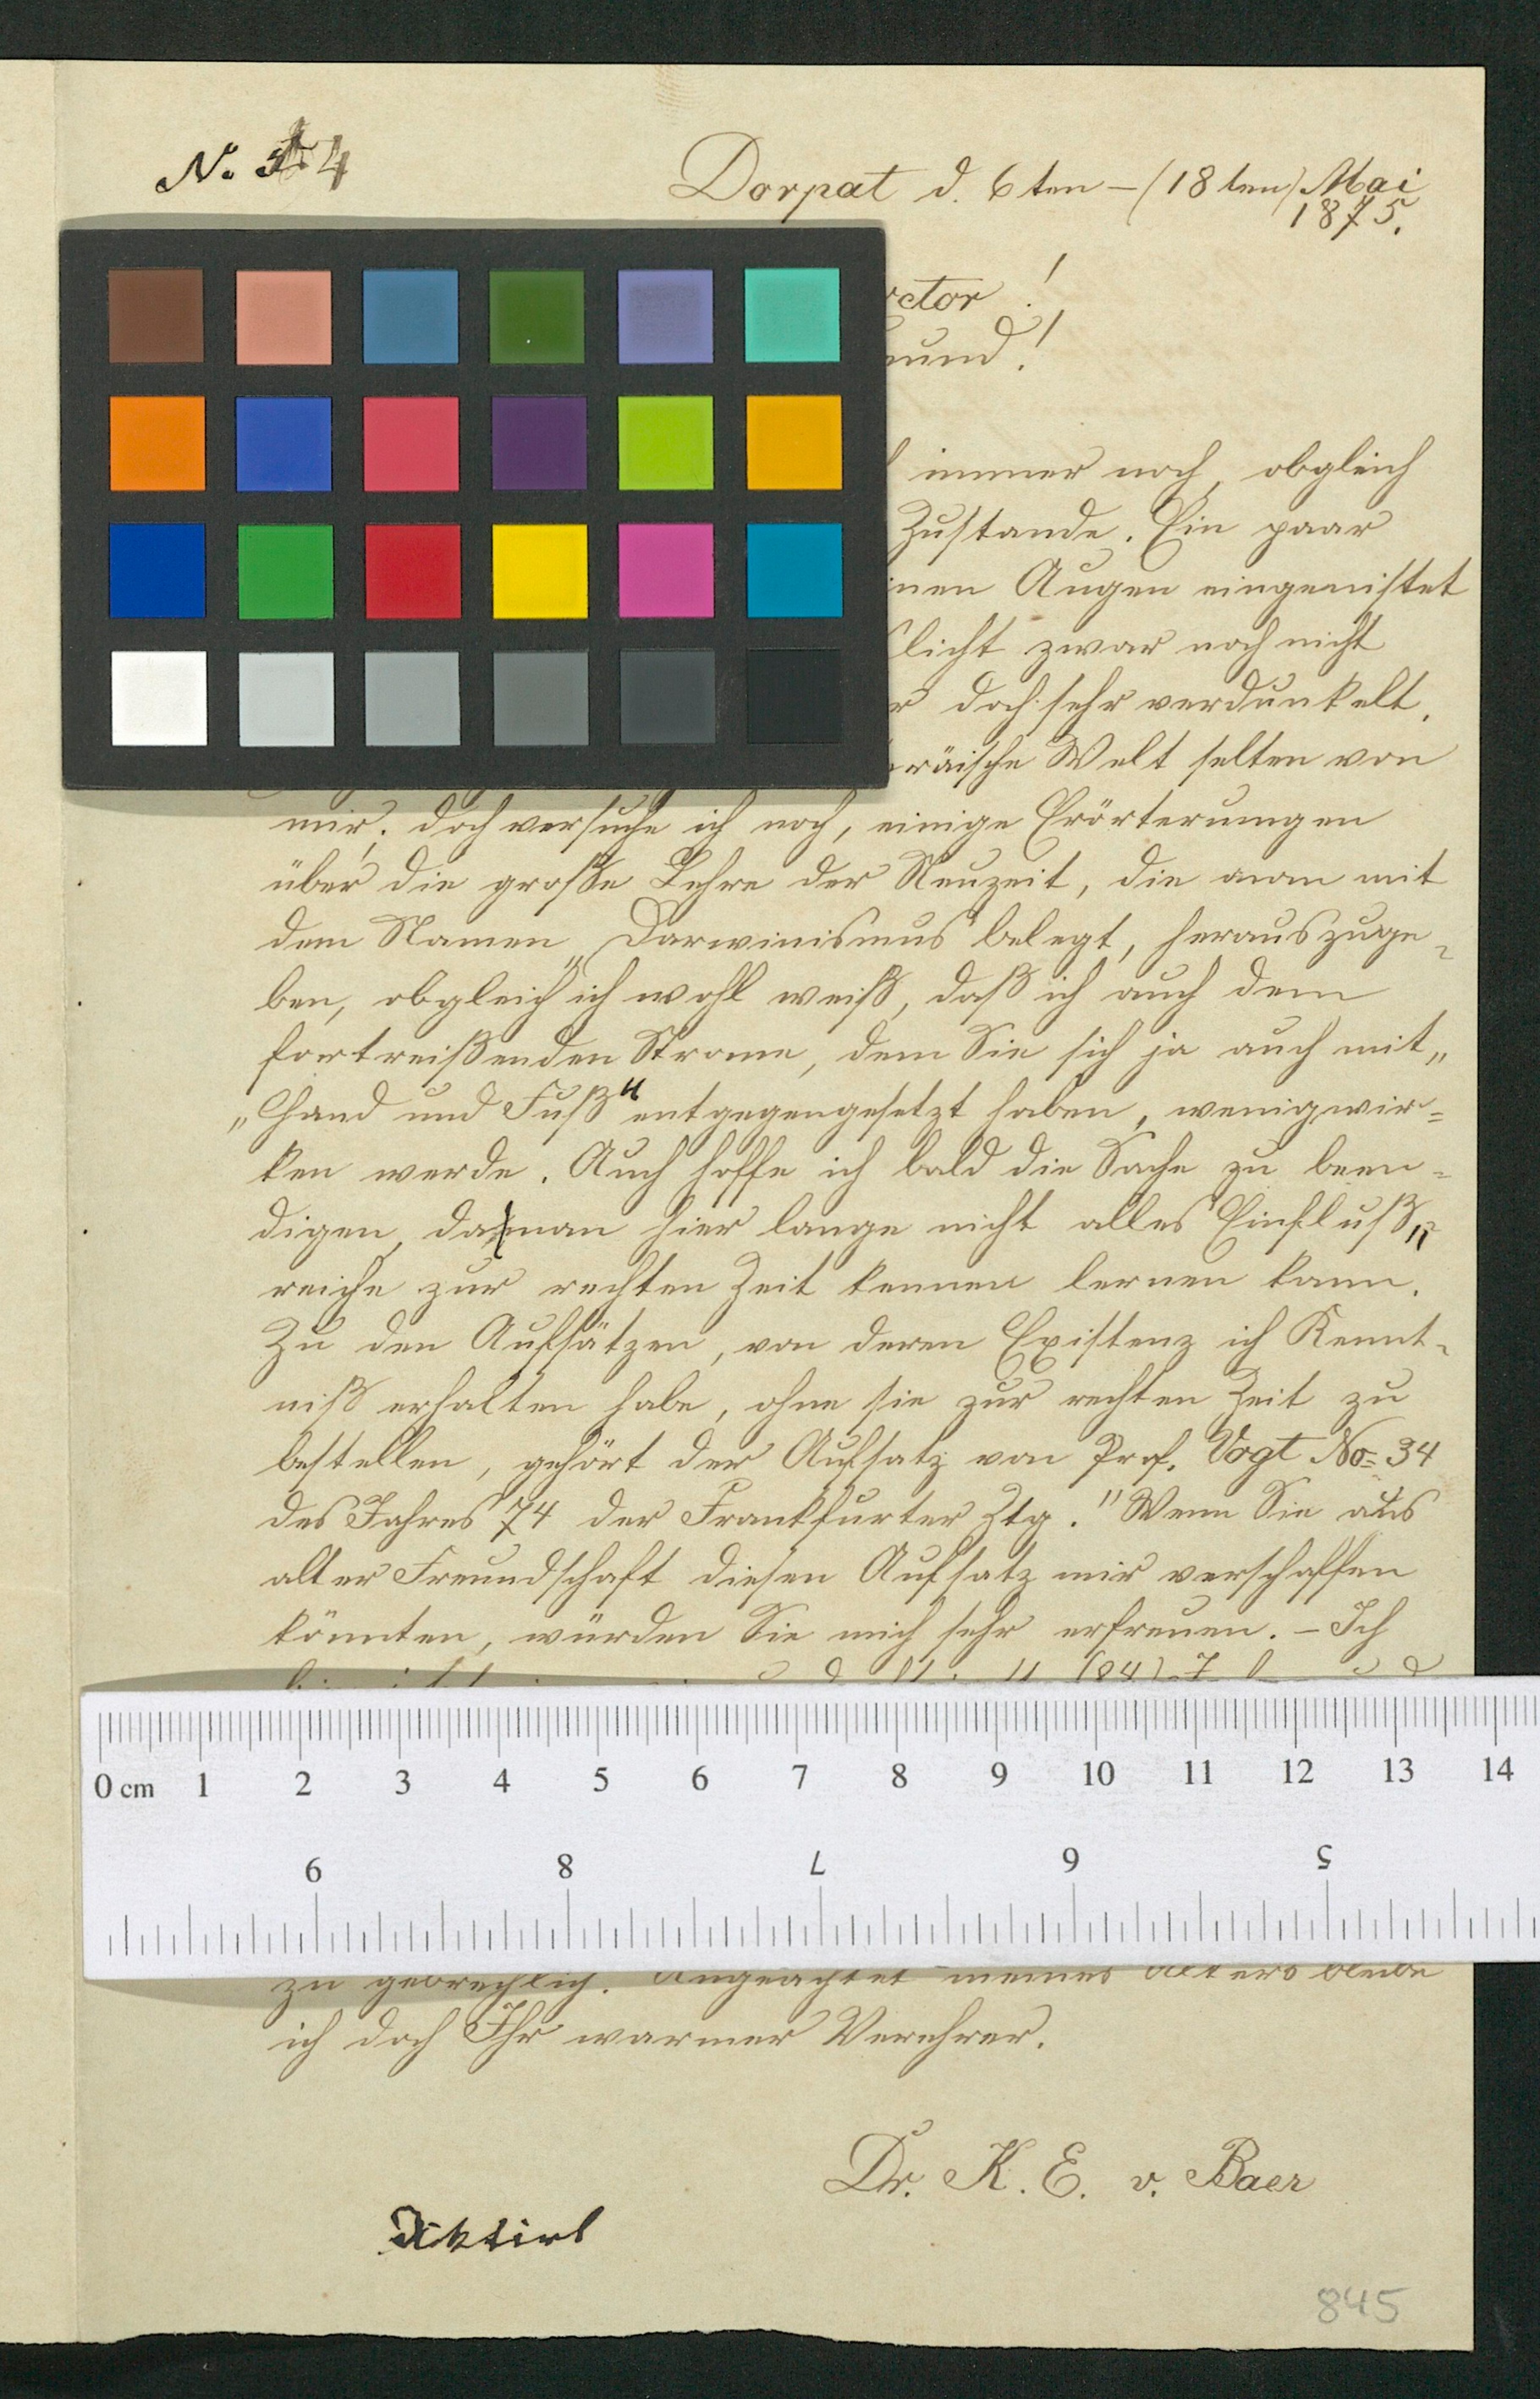 N. 4
Dorpat d. 6ten – (18ten) Mai
1875.
ctor !
eund !
immer noch, obgleich
Zustande. Ein paar
inen Augen eingenistet
licht zwar noch nicht
r doch sehr verdunkelt.
räische Welt selten von
mir; doch versuche ich noch, einige Erörterungen
über die große Lehre der Neuzeit, die man mit
dem Namen „Darwinismus" belegt, herauszuge-
ben, obgleich ich wohl weiß, daß ich auch dem
fortreißenden Strome, dem Sie sich ja auch mit „
„Hand und Fuß" entgegengesetzt haben, wenig wir=
ken werde. Auch hoffe ich bald die Sache zu been=
digen, da man hier lange nicht alles Einfluß„
reiche zur rechten Zeit kennen lernen kann.
Zu den Aufsätzen, von deren Existenz ich Kennt-
niß erhalten habe, ohne sie zur rechten Zeit zu
bestellen, gehört der Aufsatz von Prof. Vogt No= 34
des Jahres 74 der Frankfurter Ztg." Wenn Sie aus
alter Freundschaft diesen Aufsatz mir verschaffen
könnten, würden Sie mich sehr erfreuen. – Ich
0 cm 1 2 3 4 5 6 7 8 9 10 11 12 13 14
9 8 7 6 5
zu gebrechlich. Ungeachtet meines Alters bleibe
ich doch Ihr warmer Verehrer.
Dr. K. E. v. Baer
Diktirt
845